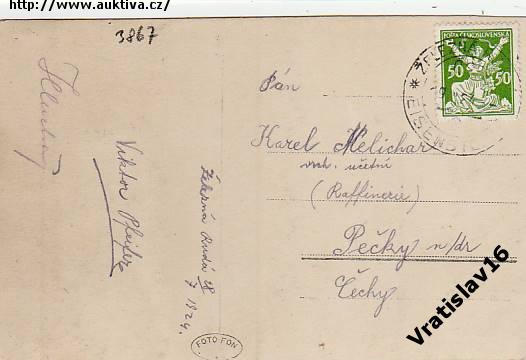 http://www.auktiva.cz/
3867
Viktor Pfeifer
Železná Ruda 28
7 1924.
FOTO FON
Pán
Karel Melichar
vrch. účetní
(Raffinerie)
Pečky n/dr
Čechy
POŠTA ČESKOSLOVENSKÁ
50 50
EISENST
Vratislav16